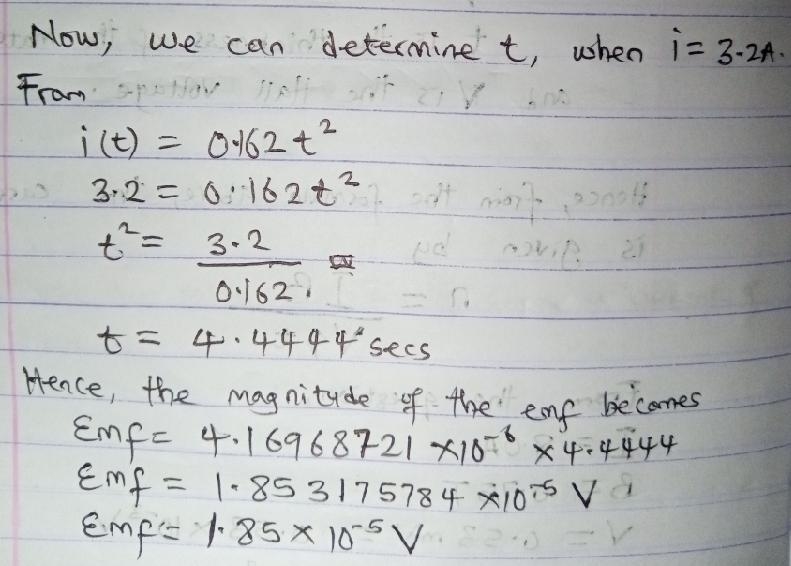 Now, we can determine t, when i = 3.2A.
From
i(t) = 0.162 t²
3.2 = 0.162 t²
t² = 3.2
0.162
t = 4.4444 secs
Hence, the magnitude of the emf becomes
Emf = 4.16968721 × 10⁻⁶ × 4.4444
Emf = 1.853175784 × 10⁻⁵ V
Emf = 1.85 × 10⁻⁵ V